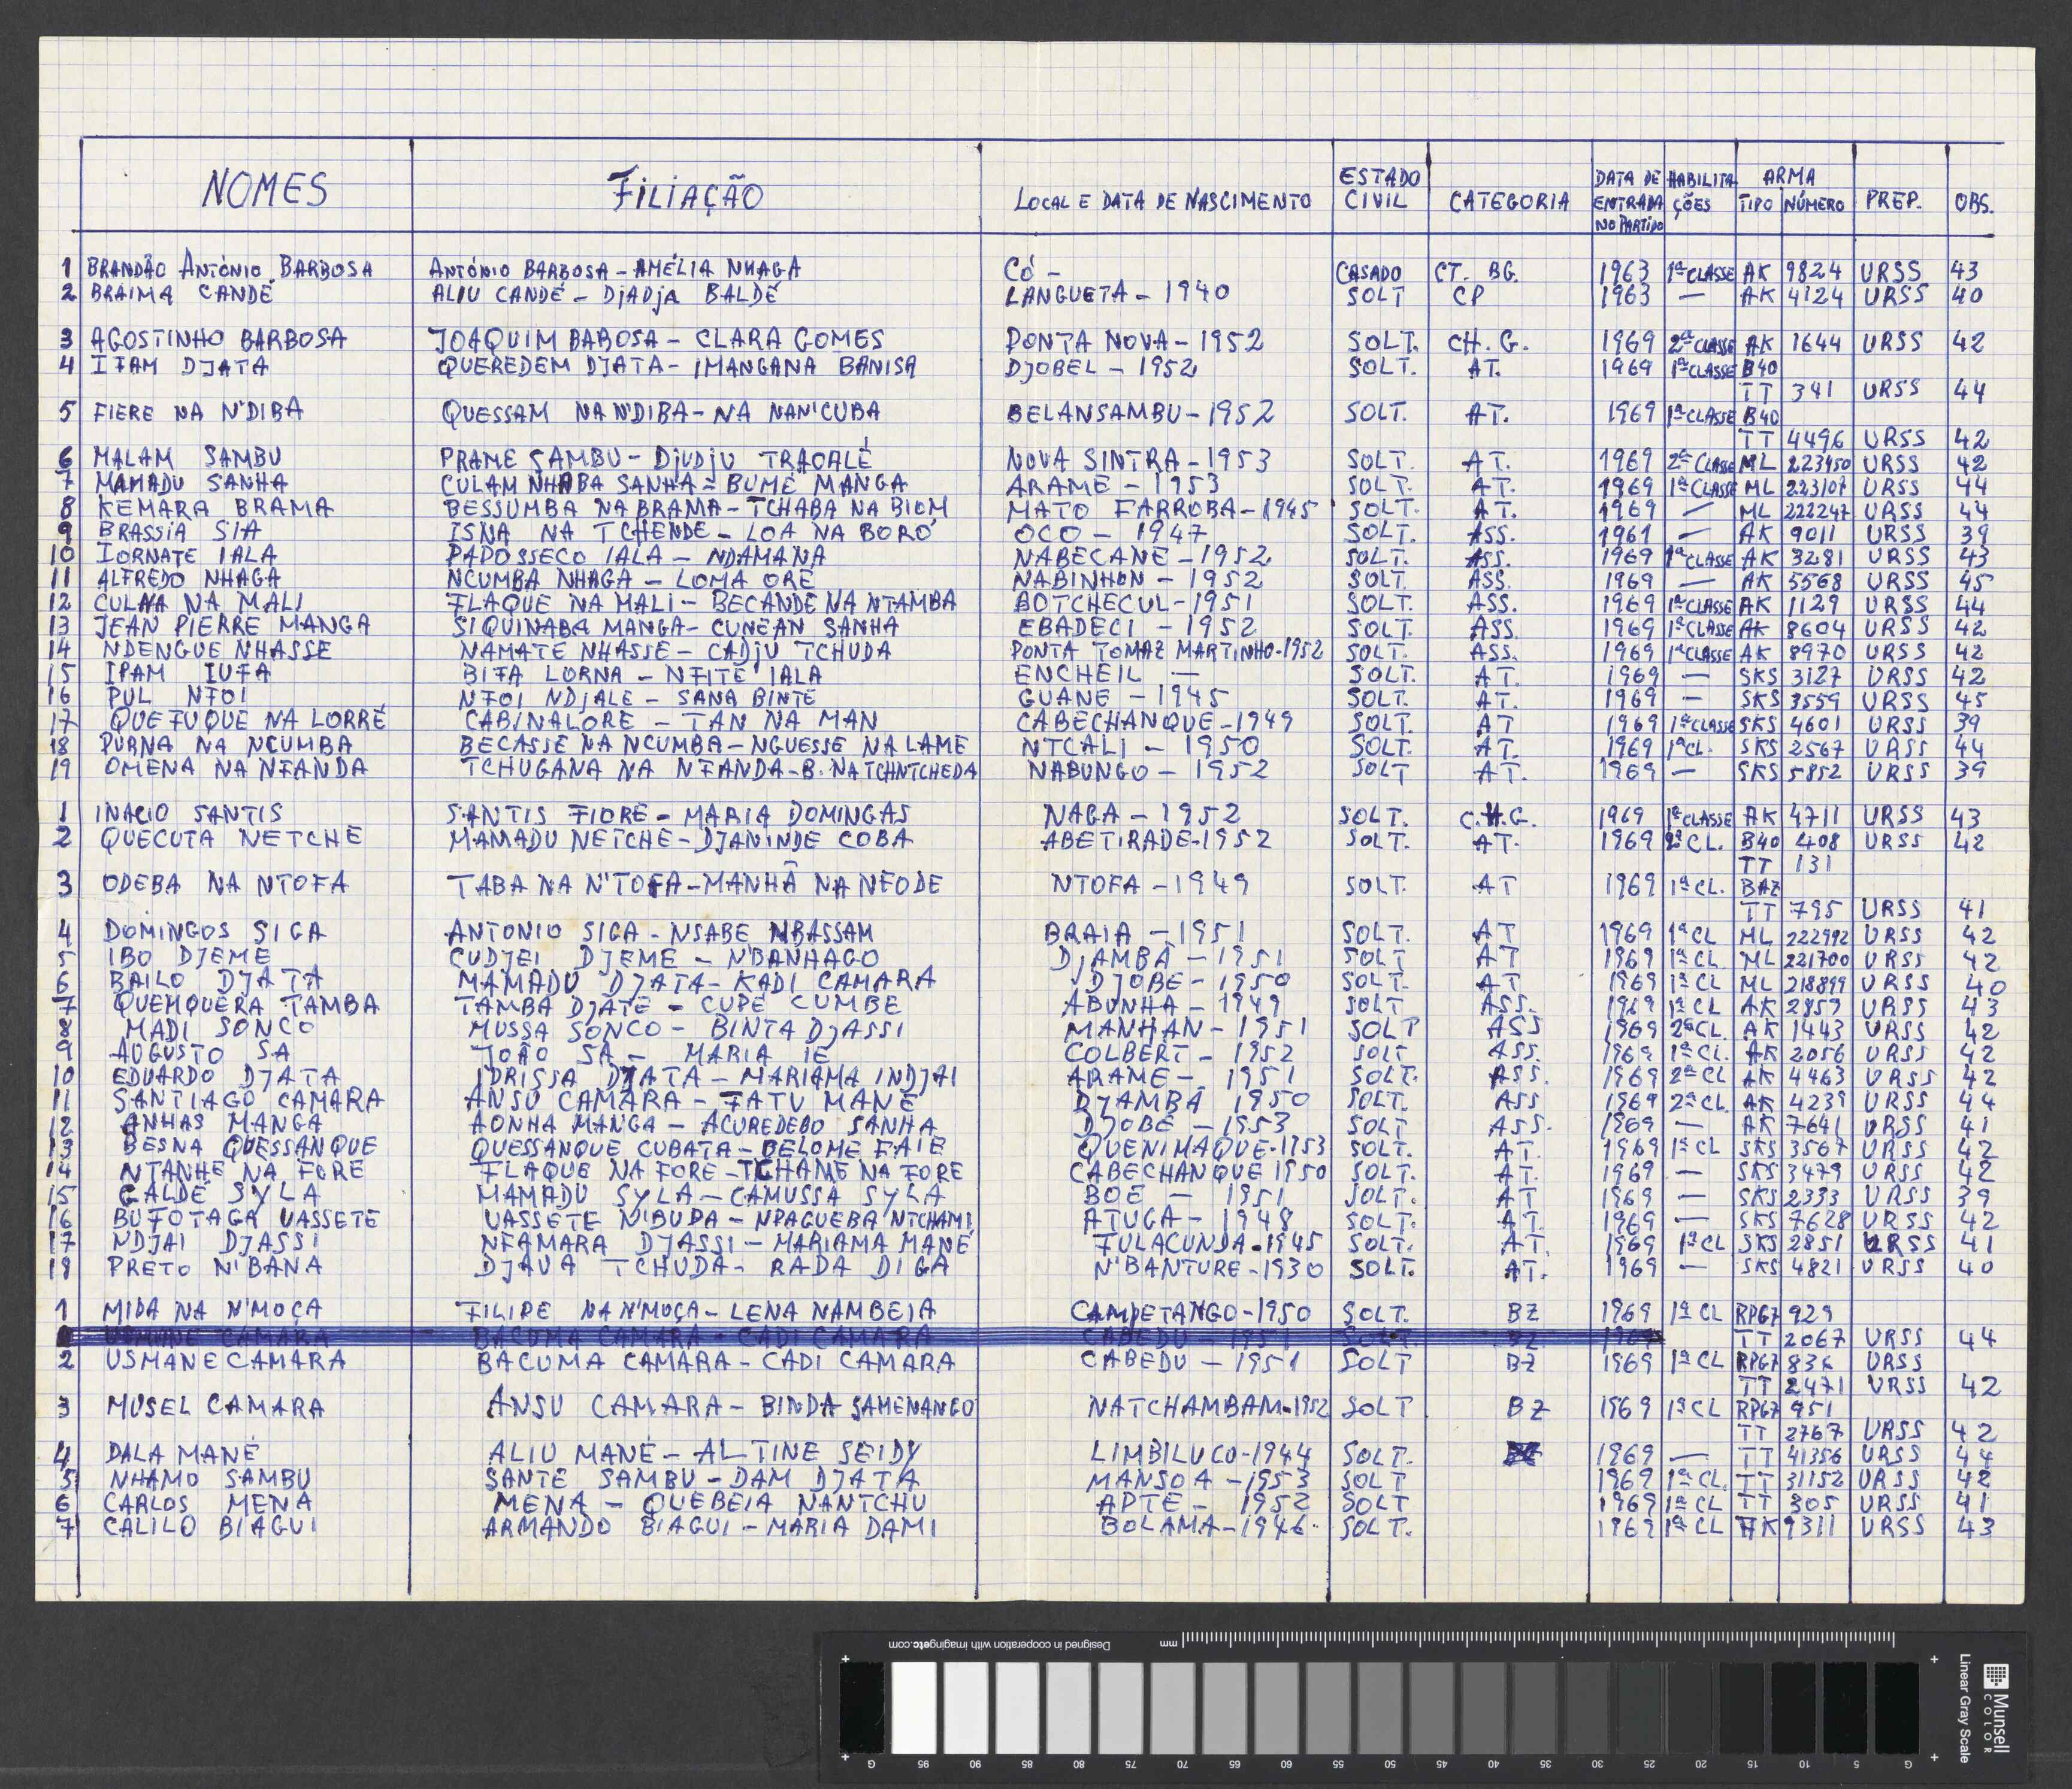 NOMES FILIAÇÃO LOCAL E DATA DE NASCIMENTO ESTADO CIVIL CATEGORIA DATA DE ENTRADA NO PARTIDO HABILITAÇÕES ARMA TIPO NÚMERO PREP. OBS.
1 BRANDÃO ANTÓNIO BARBOSA ANTÓNIO BARBOSA - AMÉLIA NHAGA CÓ - CASADO CT. BG. 1963 1ª CLASSE AK 9824 URSS 43
2 BRAIMA CANDÉ ALIU CANDÉ - DJADJA BALDÉ LANGUETA - 1940 SOLT CP 1963 — AK 4124 URSS 40
3 AGOSTINHO BARBOSA JOAQUIM BABOSA - CLARA GOMES PONTA NOVA - 1952 SOLT. CH. G. 1969 2ª CLASSE AK 1644 URSS 42
4 IFAM DJATA QUEREDEM DJATA - IMANGANA BANISA DJOBEL - 1952 SOLT. AT. 1969 1ª CLASSE B40
TT 341 URSS 44
5 FIERE NA N'DIBA QUESSAM NA N'DIBA - NA NAN'CUBA BELANSAMBU - 1952 SOLT. AT. 1969 1ª CLASSE B40
TT 4496 URSS 42
6 MALAM SAMBU PRAME SAMBU - DJUDJU TRAORLÉ NOVA SINTRA - 1953 SOLT. AT. 1969 2ª CLASSE ML 223450 URSS 42
7 MAMADU SANHA CULAM NHABA SANHA = BUME MANGA ARAME - 1953 SOLT. AT. 1969 1ª CLASSE ML 223107 URSS 44
8 KEMARA BRAMA BESSUMBA NA BRAMA - TCHABA NA BIOM MATO FARROBA - 1945 SOLT. AT. 1969 — ML 222247 URSS 44
9 BRASSIA SIA ISNA NA TCHENDE - LOA NA BORÓ OCO - 1947 SOLT. ASS. 1961 — AK 9011 URSS 39
10 IORNATE IALA PADOSSECO IALA - NDAMANA NABECANE - 1952 SOLT. ASS. 1969 1ª CLASSE AK 3281 URSS 43
11 ALFREDO NHAGA NCUMBA NHAGA - LOMA ORÉ NABINHON - 1952 SOLT. ASS. 1969 — AK 5568 URSS 45
12 CULNA NA MALI FLAQUE NA MALI - BECANDE NA NTAMBA BOTCHECUL - 1951 SOLT. ASS. 1969 1ª CLASSE AK 1129 URSS 44
13 JEAN PIERRE MANGA SIQUINABA MANGA - CUNEAN SANHA EBADECI - 1952 SOLT. ASS. 1969 1ª CLASSE AK 8604 URSS 42
14 NDENGUE NHASSE NAMATE NHASSE - CADJU TCHUDA PONTA TOMAZ MARTINHO - 1952 SOLT. ASS. 1969 1ª CLASSE AK 8970 URSS 42
15 IPAM IUFA BIFA LORNA - NFITE IALA ENCHEIL — SOLT. AT. 1969 — SKS 3127 URSS 42
16 PUL NFOI NFOI NDJALE - SANA BINTE GUANE - 1945 SOLT. AT. 1969 — SKS 3559 URSS 45
17 QUEFUQUE NA LORRÉ CABINALORE - TAN NA MAN CABECHANQUE - 1949 SOLT. AT 1969 1ª CLASSE SKS 4601 URSS 39
18 PURNA NA NCUMBA BECASSE NA NCUMBA - NGUESSE NA LAME NTCALI - 1950 SOLT. AT. 1969 1ª CL. SKS 2567 URSS 44
19 OMENA NA NFANDA TCHUGANA NA NFANDA - B. NA TCHNTCHEDA NABUNGO - 1952 SOLT AT. 1969 — SKS 5852 URSS 39
1 INACIO SANTIS SANTIS FIORE - MARIA DOMINGAS NAGA - 1952 SOLT. C.H.G. 1969 1ª CLASSE AK 4711 URSS 43
2 QUECUTA NETCHE MAMADU NETCHE - DJANINDE COBA ABETIRADE - 1952 SOLT. AT. 1969 2ª CL. B40 408 URSS 42
TT 131
3 ODEBA NA NTOFA TABA NA N'TOFA - MANHÃ NA NFODE NTOFA - 1949 SOLT. AT 1969 1ª CL. BAZ
TT 795 URSS 41
4 DOMINGOS SIGA ANTONIO SIGA - NSABE NBASSAM BRAIA - 1951 SOLT. AT 1969 1ª CL ML 222992 URSS 42
5 IBO DJEME CUDJEI DJEME - N'BANHAGO DJAMBÁ - 1951 SOLT AT 1969 1ª CL. ML 221700 URSS 42
6 BAILO DJATA MAMADU DJATA - KADI CAMARA DJOBE - 1950 SOLT. AT 1969 1ª CL ML 218899 URSS 40
7 QUEMQUERA TAMBA TAMBA DJATE - CUPE CUMBE ABUNHA - 1949 SOLT ASS. 1969 1ª CL AK 2859 URSS 43
8 MADI SONCO MUSSA SONCO - BINTA DJASSI MANHAN - 1951 SOLT ASS 1969 2ª CL. AK 1443 URSS 42
9 AUGUSTO SA JOÃO SA - MARIA IE COLBERT - 1952 SOLT ASS. 1969 1ª CL. AK 2056 URSS 42
10 EDUARDO DJATA IDRISSA DJATA - MARIAMA INDJAI ARAME - 1951 SOLT. ASS. 1969 2ª CL AK 4463 URSS 42
11 SANTIAGO CAMARA ANSU CAMARA - FATU MANE DJAMBÁ 1950 SOLT. ASS 1969 2ª CL. AK 4239 URSS 44
12 ANHAS MANGA AONHA MANGA - ACUREDEBO SANHA DJOBE - 1953 SOLT ASS. 1969 — AK 7641 URSS 41
13 BESNA QUESSANQUE QUESSANQUE CUBATA - BELOME FAIE QUENIMAQUE - 1953 SOLT. AT. 1969 1ª CL SKS 3567 URSS 42
14 NTANHE NA FORE FLAQUE NA FORE - TCHAME NA FORE CABECHANQUE 1950 SOLT. AT. 1969 — SKS 3479 URSS 42
15 GALDÉ SYLA MAMADU SYLA - CAMUSSA SYLA BOE - 1951 SOLT. AT 1969 — SKS 2393 URSS 39
16 BUFOTAGA UASSETE UASSETE N'BUDA - NPAGUEBA NTCHAMI ATUGA - 1948 SOLT. AT. 1969 — SKS 7628 URSS 42
17 NDJAI DJASSI NFAMARA DJASSI - MARIAMA MANÉ FULACUNDA - 1945 SOLT. AT. 1969 1ª CL SKS 2851 URSS 41
18 PRETO N'BANA DJAVA TCHUDA - RADA DIGA N'BANTURE - 1930 SOLT. AT. 1969 — SKS 4821 URSS 40
1 MIDA NA N'MOÇA FILIPE NA N'MOÇA - LENA NAMBEIA CAMPETANGO - 1950 SOLT. BZ 1969 1ª CL RPG7 929
USMANE CAMARA BACUMA CAMARA - CADI CAMARA CABEDU - 1951 SOLT BZ 1969 TT 2067 URSS 44
2 USMANE CAMARA BACUMA CAMARA - CADI CAMARA CABEDU - 1951 SOLT BZ 1969 1ª CL RPG7 836 URSS
TT 2471 URSS 42
3 MUSEL CAMARA ANSU CAMARA - BINDA SAMENANGO NATCHAMBAM - 1952 SOLT BZ 1969 1ª CL RPG7 951
TT 2767 URSS 42
4 DALA MANÉ ALIU MANÉ - ALTINE SEIDY LIMBILUCO - 1944 SOLT. 1969 — TT 41356 URSS 44
5 NHAMO SAMBU SANTE SAMBU - DAM DJATA MANSOA - 1953 SOLT 1969 1ª CL. TT 31152 URSS 42
6 CARLOS MENA MENA - QUEBEIA NANTCHU APTE - 1952 SOLT 1969 1ª CL TT 305 URSS 41
7 CALILO BIAGUI ARMANDO BIAGUI - MARIA DAMI BOLAMA - 1946. SOLT. 1969 1ª CL AK 9311 URSS 43
Designed in cooperation with imagingetc.com mm
G 95 90 85 80 75 70 65 60 55 50 45 40 35 30 25 20 15 10 5 G
Munsell COLOR
Linear Gray Scale